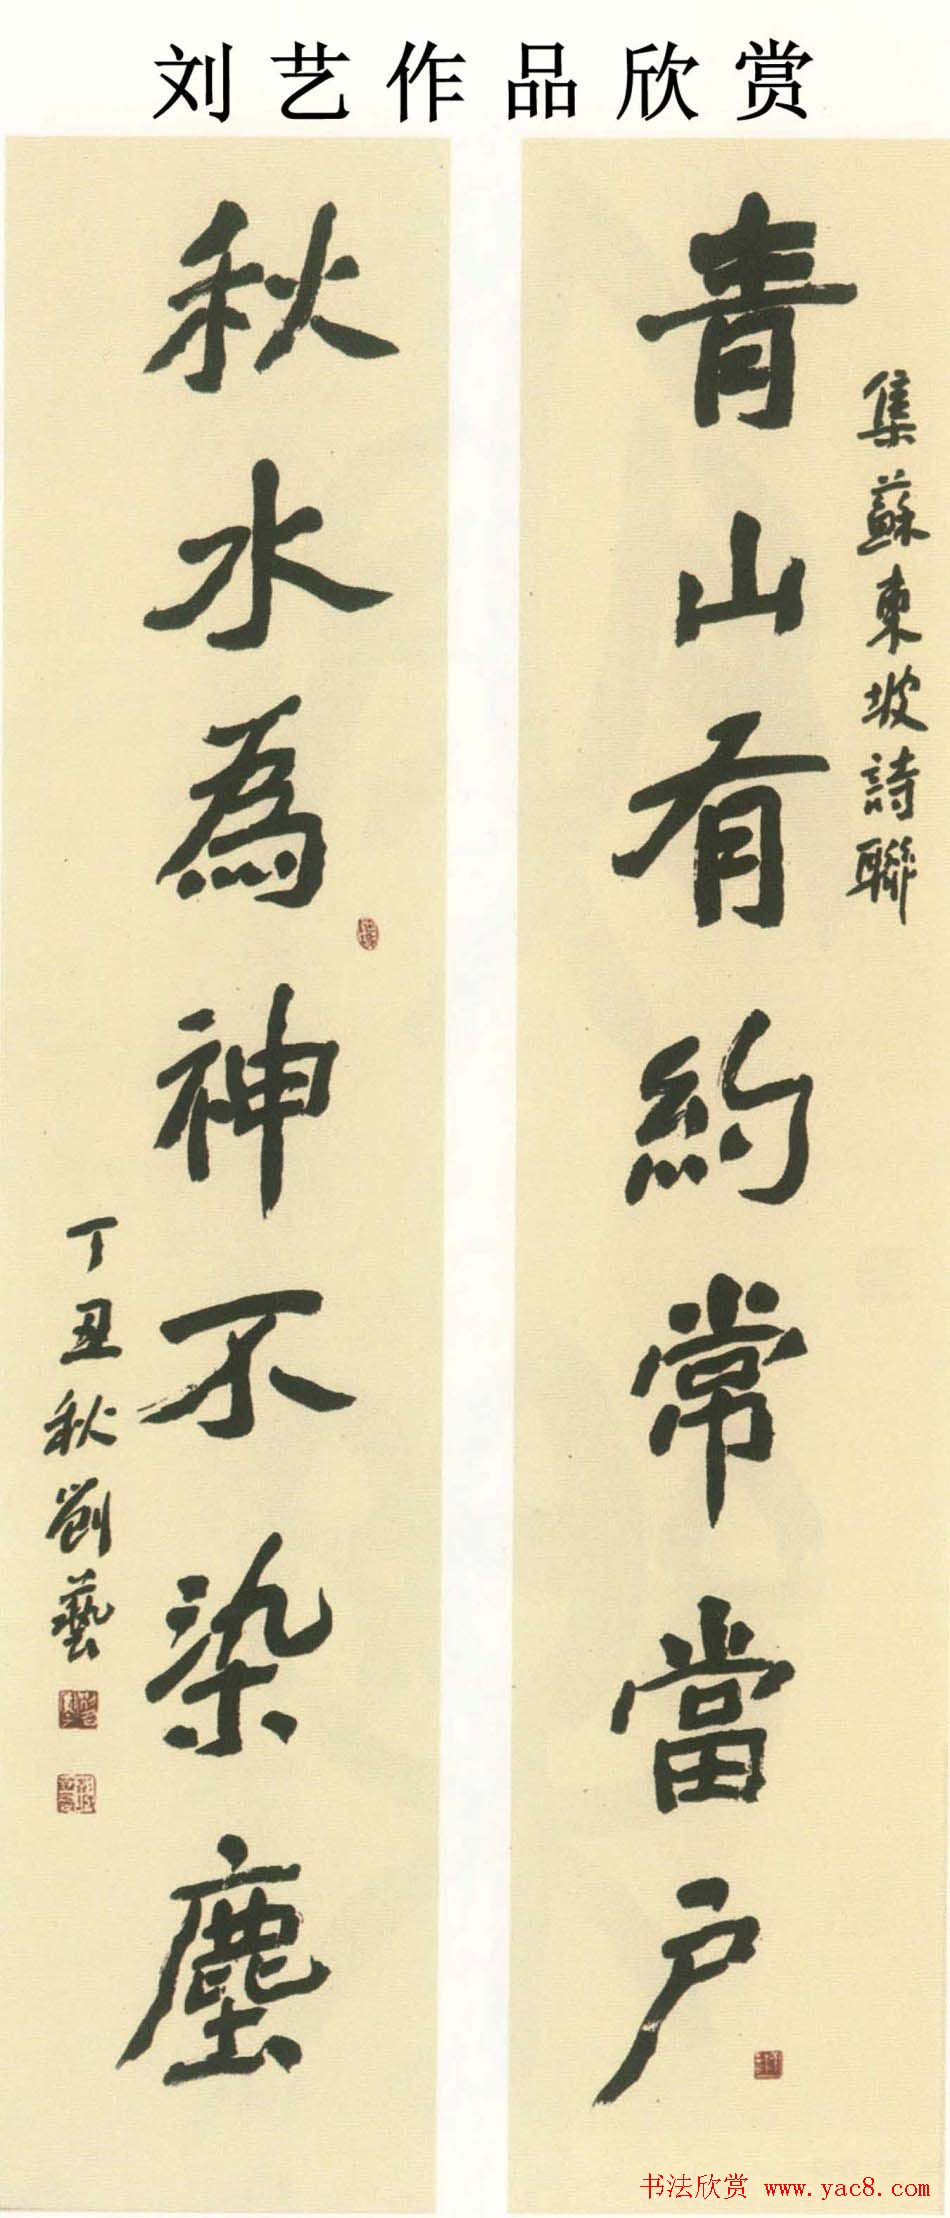 刘艺作品欣赏
集蘇東坡詩聯
青山有約常當户
秋水為神不染塵
丁丑秋劉藝
书法欣赏 www.yac8.com